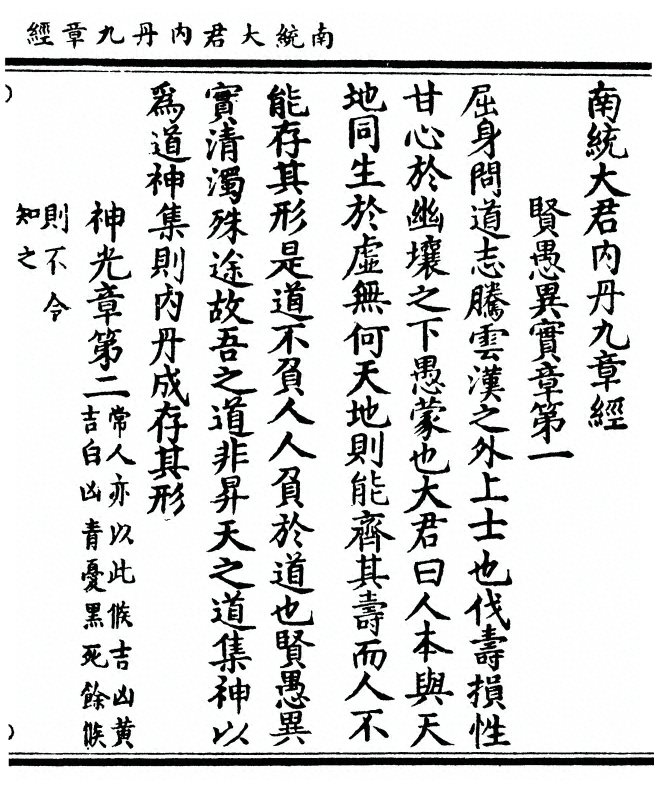 南統大君内丹九章經
南統大君内丹九章經
賢愚異實章第一
屈身問道志騰雲漢之外上士也伐壽損性
甘心於幽壤之下愚蒙也大君曰人本與天
地同生於虛無何天地則能齊其壽而人不
能存其形是道不負人人負於道也賢愚異
實清濁殊途故吾之道非昇天之道集神以
爲道神集則内丹成存其形
神光章第二
常人亦以此候吉凶黄
吉白凶青憂黑死餘候
則不令
知之